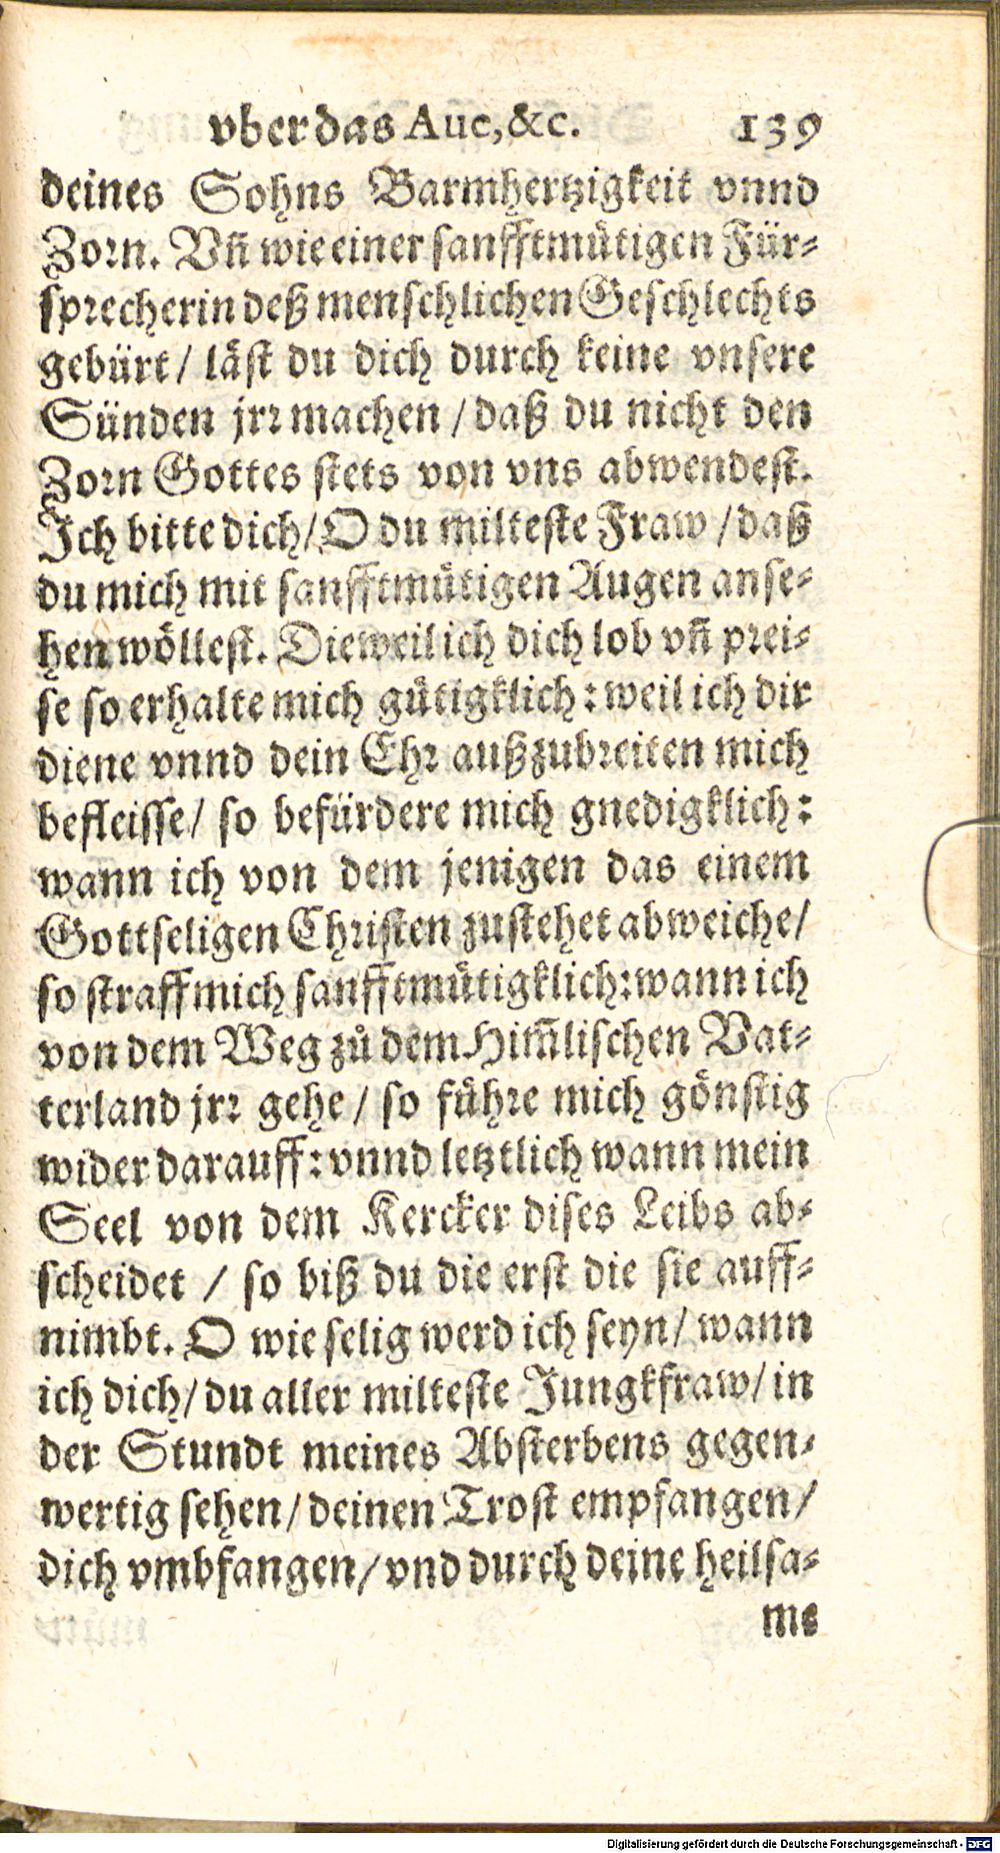 vber das Aue, &c. 139
deines Sohns Barmhertzigkeit vnnd
Zorn. Vñ wie einer sanfftmütigen Für-
sprecherin deß menschlichen Geschlechts
gebürt / läst du dich durch keine vnsere
Sünden jrr machen / daß du nicht den
Zorn Gottes stets von vns abwendest.
Ich bitte dich / O du milteste Fraw / daß
du mich mit sanfftmütigen Augen anse-
hen wöllest. Dieweil ich dich lob vñ prei-
se so erhalte mich gütigklich: weil ich dir
diene vnnd dein Ehr außzubreiten mich
befleisse / so befürdere mich gnedigklich:
wann ich von dem jenigen das einem
Gottseligen Christen zustehet abweiche /
so straff mich sanfftmütigklich: wann ich
von dem Weg zů dem Him̃lischen Vat-
terland jrr gehe / so führe mich gönstig
wider darauff: vnnd letztlich wann mein
Seel von dem Kercker dises Leibs ab-
scheidet / so biß du die erst die sie auff-
nimbt. O wie selig werd ich seyn / wann
ich dich / du aller milteste Jungkfraw / in
der Stundt meines Absterbens gegen-
wertig sehen / deinen Trost empfangen /
dich vmbfangen / vnd durch deine heilsa-
me
Digitalisierung gefördert durch die Deutsche Forschungsgemeinschaft - DFG